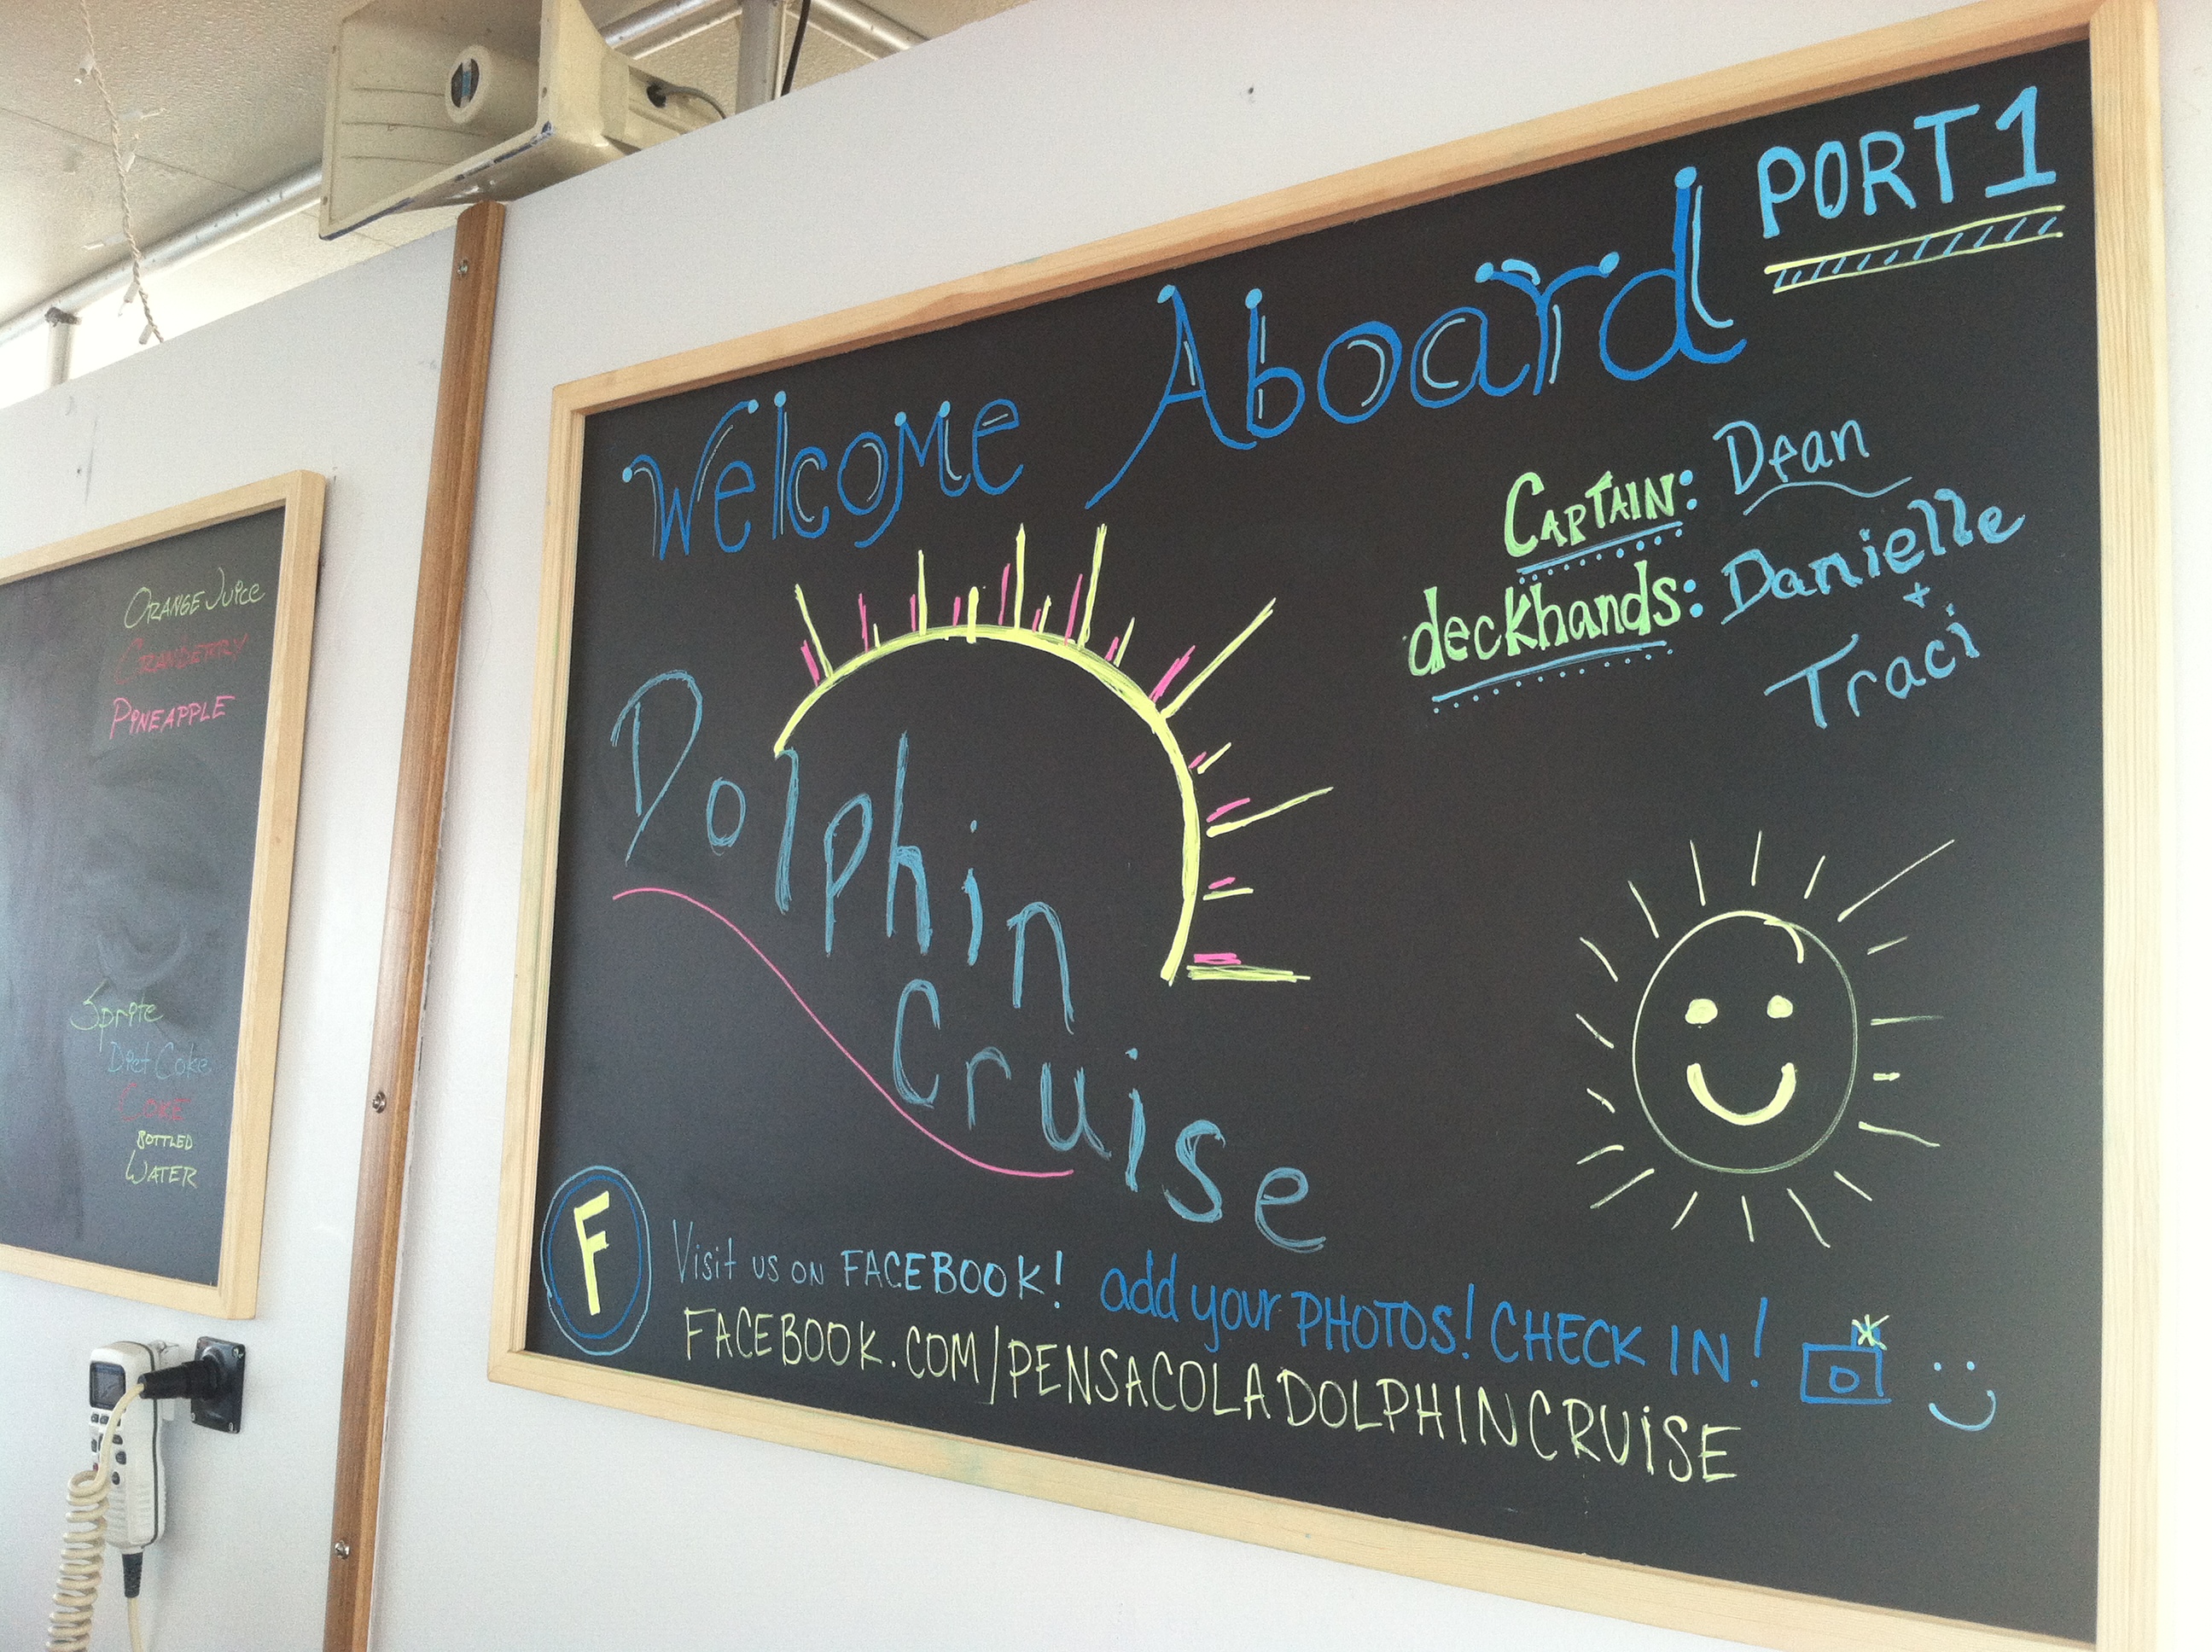 ORANGE JUICE
CRANBERRY
PINEAPPLE
Sprite
Diet Coke
COKE
BOTTLED
WATER
PORT 1
Welcome Aboard
CAPTAIN: Dean
deckhands: Danielle
+
Traci
Dolphin
Cruise
F
Visit us on FACEBOOK! add your PHOTOS! CHECK IN!
FACEBOOK.COM/PENSACOLADOLPHINCRUISE